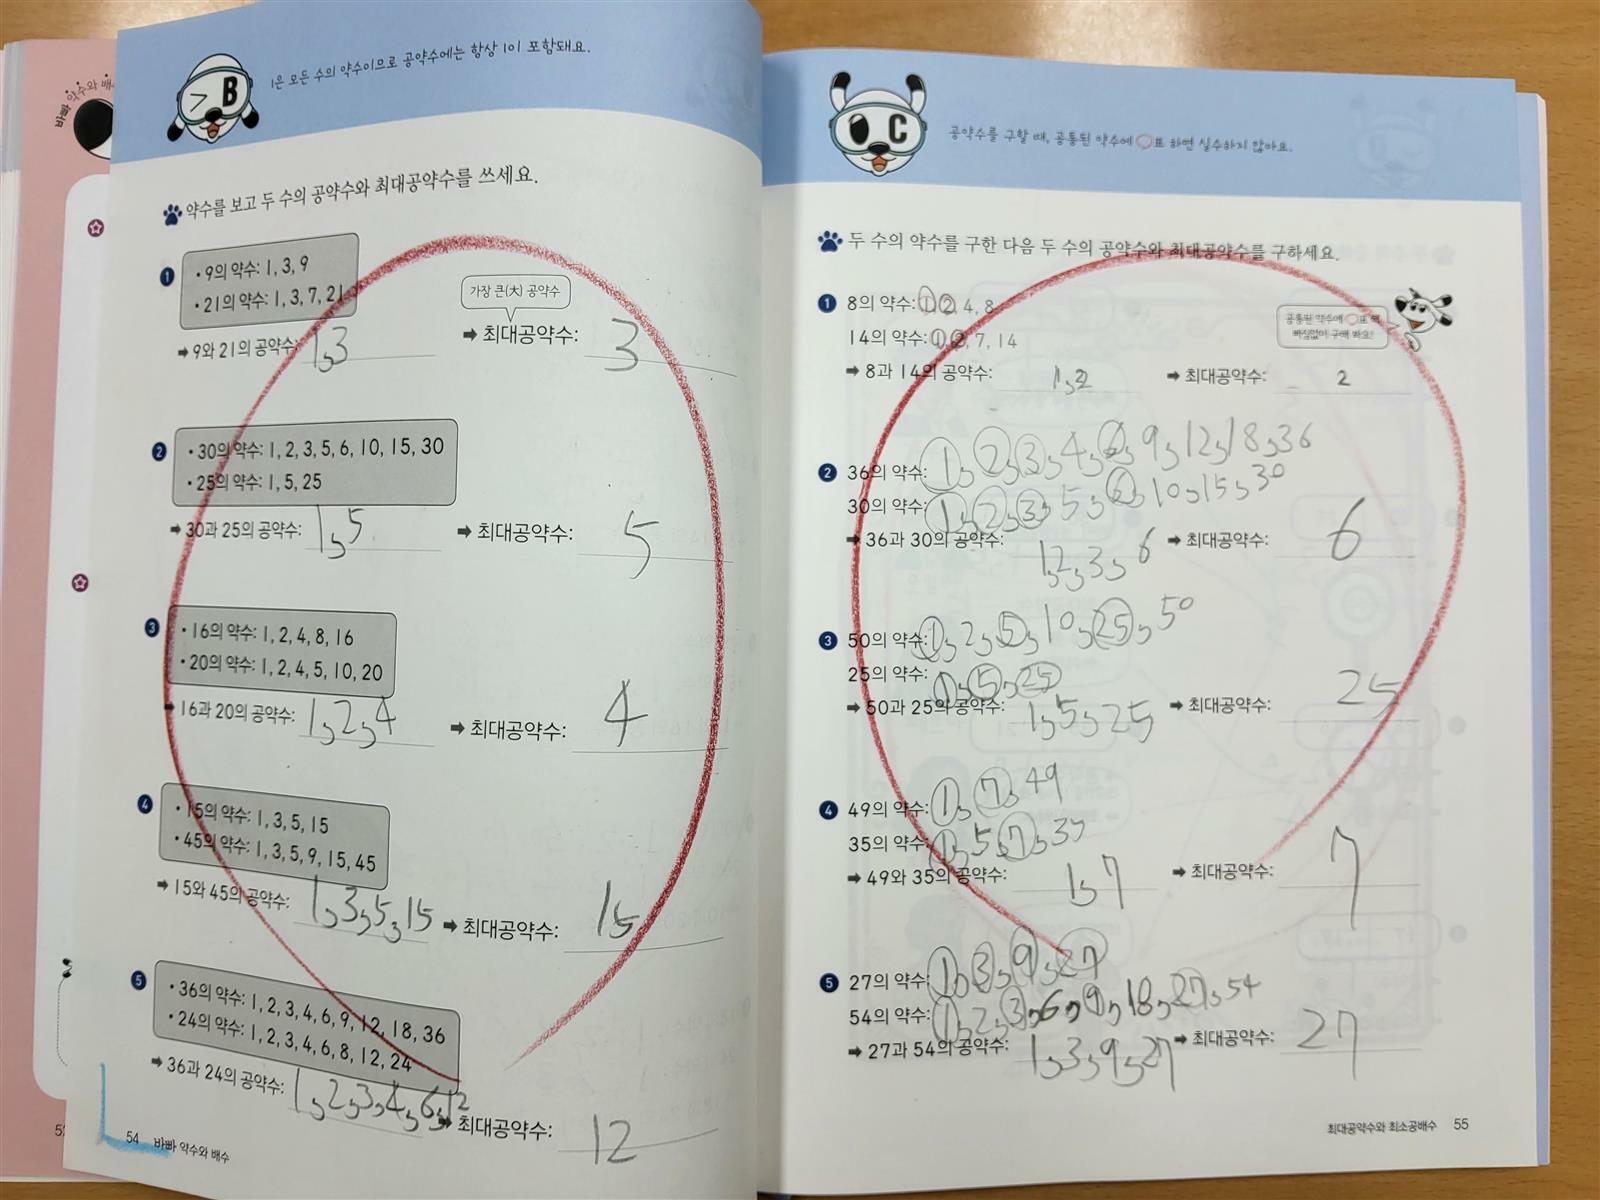 바빠 약수와 배수
B
1은 모든 수의 약수이므로 공약수에는 항상 1이 포함돼요.
약수를 보고 두 수의 공약수와 최대공약수를 쓰세요.
1
• 9의 약수: 1, 3, 9
• 21의 약수: 1, 3, 7, 21
가장 큰(大) 공약수
➡ 9와 21의 공약수: 1, 3 ➡ 최대공약수: 3
2
• 30의 약수: 1, 2, 3, 5, 6, 10, 15, 30
• 25의 약수: 1, 5, 25
➡ 30과 25의 공약수: 1, 5 ➡ 최대공약수: 5
3
• 16의 약수: 1, 2, 4, 8, 16
• 20의 약수: 1, 2, 4, 5, 10, 20
➡ 16과 20의 공약수: 1, 2, 4 ➡ 최대공약수: 4
4
• 15의 약수: 1, 3, 5, 15
• 45의 약수: 1, 3, 5, 9, 15, 45
➡ 15와 45의 공약수: 1, 3, 5, 15 ➡ 최대공약수: 15
5
• 36의 약수: 1, 2, 3, 4, 6, 9, 12, 18, 36
• 24의 약수: 1, 2, 3, 4, 6, 8, 12, 24
➡ 36과 24의 공약수: 1, 2, 3, 4, 6, 12 ➡ 최대공약수: 12
54 바빠 약수와 배수
C
공약수를 구할 때, 공통된 약수에 ○표 하면 실수하지 않아요.
두 수의 약수를 구한 다음 두 수의 공약수와 최대공약수를 구하세요.
1 8의 약수: 1, 2, 4, 8
14의 약수: 1, 2, 7, 14
공통된 약수에 ○표 해
빠짐없이 구해 봐요!
➡ 8과 14의 공약수: 1, 2 ➡ 최대공약수: 2
2 36의 약수: 1, 2, 3, 4, 6, 9, 12, 18, 36
30의 약수: 1, 2, 3, 5, 6, 10, 15, 30
➡ 36과 30의 공약수: 1, 2, 3, 6 ➡ 최대공약수: 6
3 50의 약수: 1, 2, 5, 10, 25, 50
25의 약수: 1, 5, 25
➡ 50과 25의 공약수: 1, 5, 25 ➡ 최대공약수: 25
4 49의 약수: 1, 7, 49
35의 약수: 1, 5, 7, 35
➡ 49와 35의 공약수: 1, 7 ➡ 최대공약수: 7
5 27의 약수: 1, 3, 9, 27
54의 약수: 1, 2, 3, 6, 9, 18, 27, 54
➡ 27과 54의 공약수: 1, 3, 9, 27 ➡ 최대공약수: 27
최대공약수와 최소공배수 55